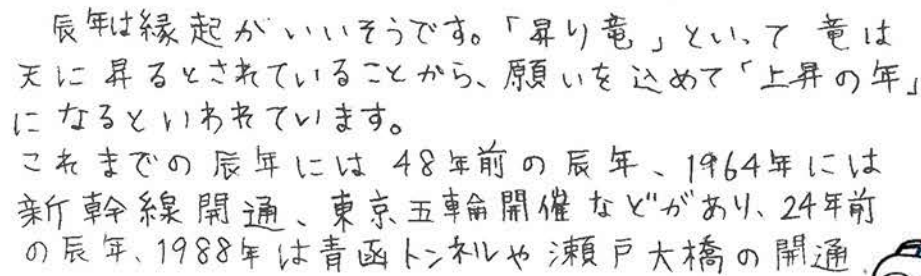 辰年は縁起がいいそうです。「昇り竜」といって竜は
天に昇るとされていることから、願いを込めて「上昇の年」
になるといわれています。
これまでの辰年には48年前の辰年、1964年には
新幹線開通、東京五輪開催などがあり、24年前
の辰年、1988年は青函トンネルや瀬戸大橋の開通